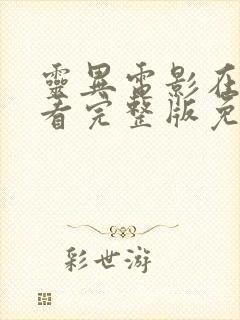 靈異電影在
看完整版免
彩世游